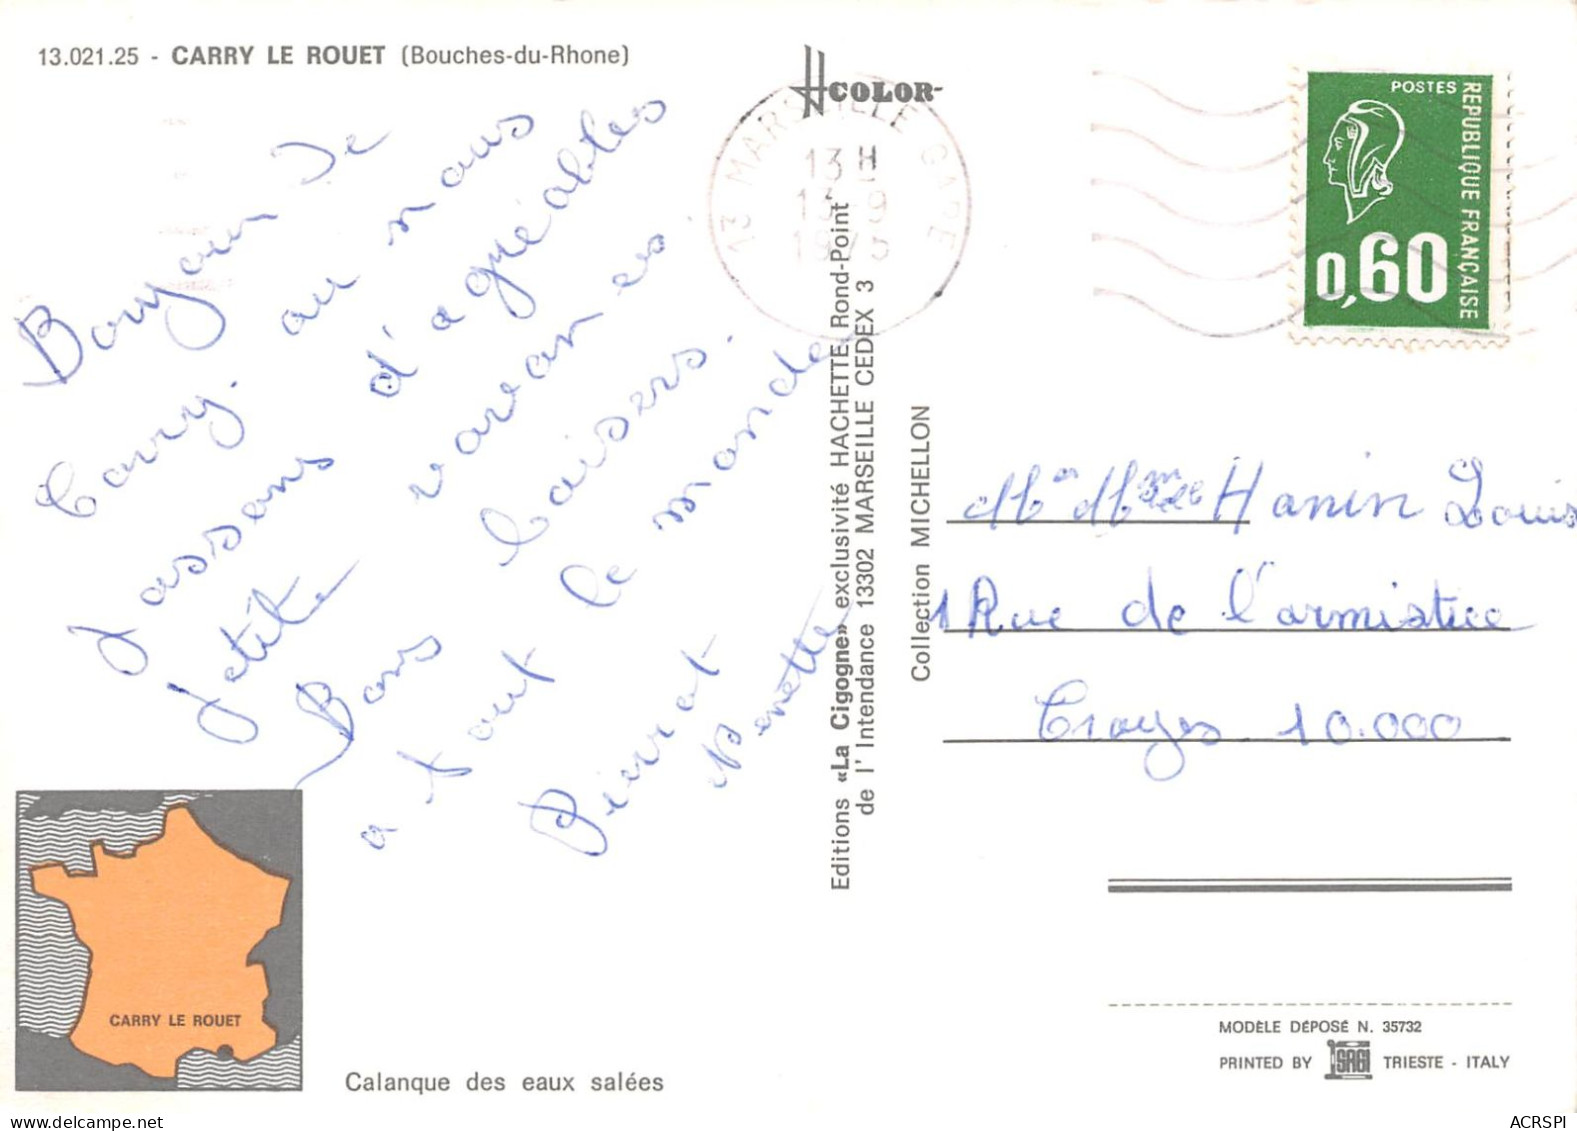 13.021.25 - CARRY LE ROUET (Bouches-du-Rhone)
Bonjour de
Carry. ou nous
passons d'agréables
petite vacances
Bons baisers.
a tout le monde
Pierrot
Ninette
COLOR
13 MARSEILLE GARE
13 H
13-9
1975
POSTES
REPUBLIQUE FRANÇAISE
0,60
Editions «La Cigogne» exclusivité HACHETTE Rond-Point
de l'Intendance 13302 MARSEILLE CEDEX 3
Collection MICHELLON
Hanin Louis
1 Rue de l'armistice
Troyes 10.000
CARRY LE ROUET
Calanque des eaux salées
MODÈLE DÉPOSÉ N. 35732
PRINTED BY SAGI TRIESTE - ITALY
ACRSPI